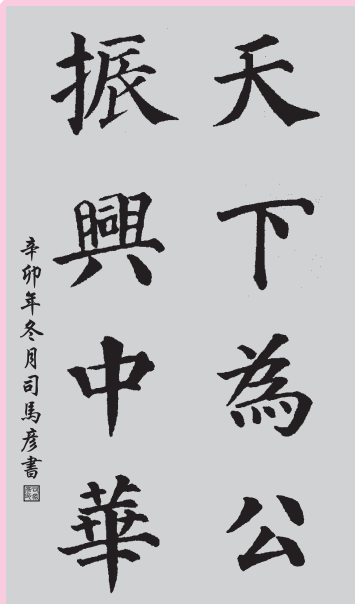 天下為公
振興中華
辛卯年冬月司馬彥書